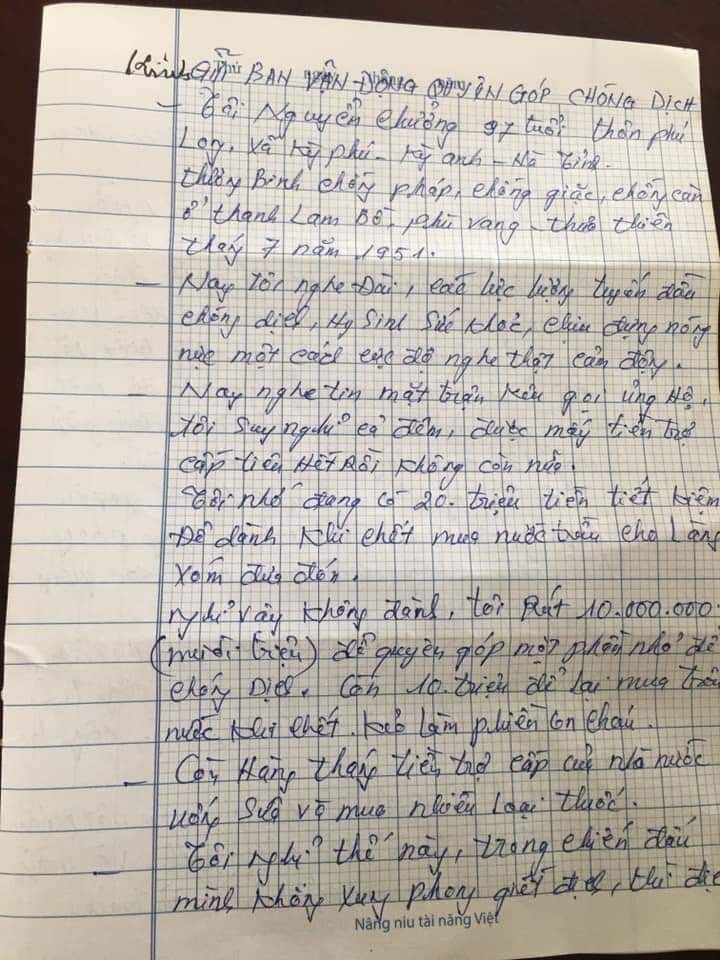 Kính gửi BAN VẬN ĐỘNG QUYÊN GÓP CHỐNG DỊCH
- Tôi Nguyễn Chưởng 97 tuổi thôn phú
Long, xã Kỳ phú - Kỳ anh - Hà Tỉnh.
thương Binh chống pháp, chống giặc, chống càn
ở thanh Lam Bồ, phú vang - thừa thiên
tháy 7 năm 1951.
- Nay tôi nghe Đài, các lực lượng tuyến đầu
chống dịch, Hy Sinh Sức Khoẻ, chịu đựng nóng
nực một cách cực độ nghe thật cảm động.
- Nay nghe tin mặt trận kêu gọi ủng Hộ,
tôi Suy nghĩ cả đêm, được mấy tiền trợ
cấp tiêu HếT Rồi không còn nữa.
Tôi nhớ đang có 20. triệu tiền tiết kiệm
Để dành khi chết mua nước trầu cho Làng
Xóm đưa đón.
nghĩ vậy không đành, tôi Rút 10.000.000
(mười triệu) để quyên góp một phần nhỏ để
chống Dịch. Còn 10. triệu để lại mua trầu
nước khi chết. Kẻo làm phiền con cháu.
- Còn Hàng tháng tiền trợ cấp của nhà nước
uống Sữa và mua nhiều loại thuốc.
- Tôi nghĩ thế này, trong chiến đấu
mình không xung phong giết địch, thì địc
Nâng niu tài năng Việt